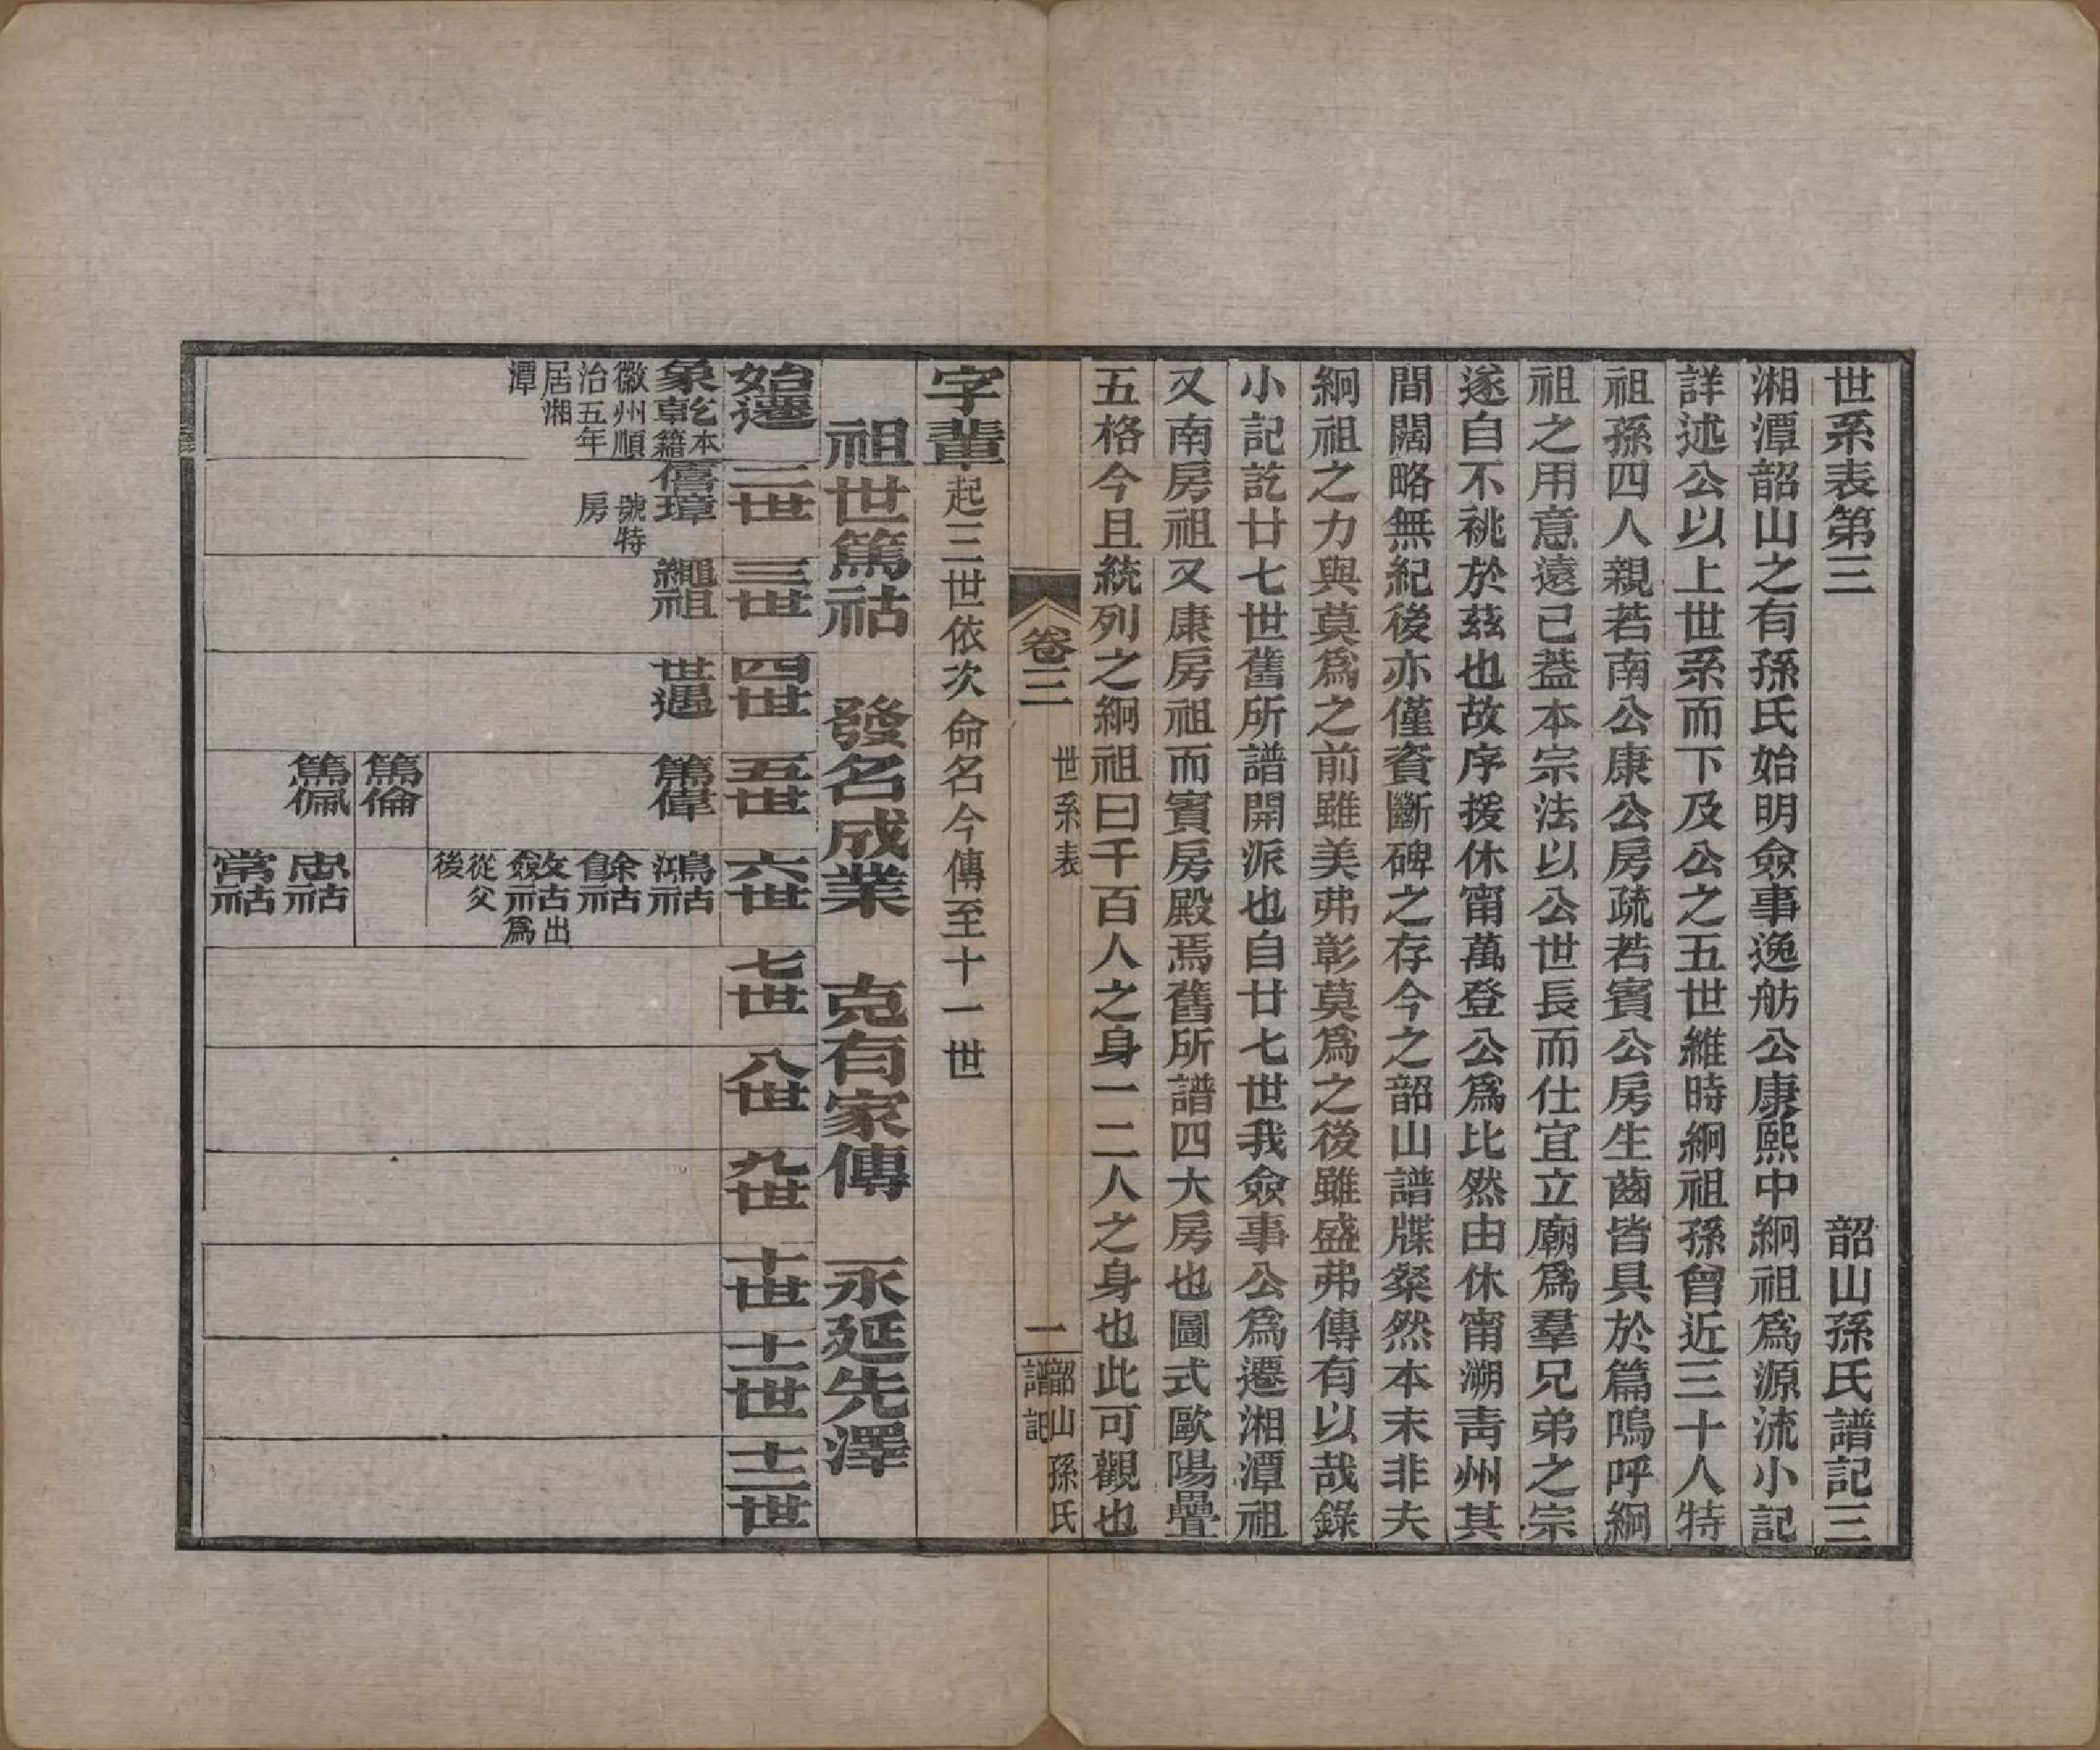 世系表第三　韶山孫氏譜記三
湘潭韶山之有孫氏始明僉事逸舫公康熙中絅祖爲源流小記
詳述公以上世系而下及公之五世維時絅祖孫曾近三十人特
祖孫四人親若南公康公房疏若賓公房生齒皆具於篇嗚呼絅
祖之用意遠已葢本宗法以公世長而仕宜立廟爲羣兄弟之宗
遂自不祧於茲也故序援休甯萬登公爲比然由休甯溯靑州其
間闊略無紀後亦僅資斷碑之存今之韶山譜牒粲然本末非夫
絅祖之力與莫爲之前雖美弗彰莫爲之後雖盛弗傳有以哉錄
小記訖廿七世舊所譜開派也自廿七世我僉事公爲遷湘潭祖
又南房祖又康房祖而賓房殿焉舊所譜四大房也圖式歐陽疊
五格今且統列之絅祖曰千百人之身一二人之身也此可觀也
卷三　世系表　一　韶山孫氏譜記
字輩起三世依次命名今傳至十一世
祖世篤祜　發名成業　克有家傳　永延先澤
始遷　二世　三世　四世　五世　六世　七世　八世　九世　十世　十一世　十二世
象乾本籍徽州順治五年居湘潭
僖璋號特房
繩祖
世遇
篤偉
鴻祜
餘祜
僉祜
攸祜出爲僉祜從父後
篤倫
篤佩
忠祜
常祜